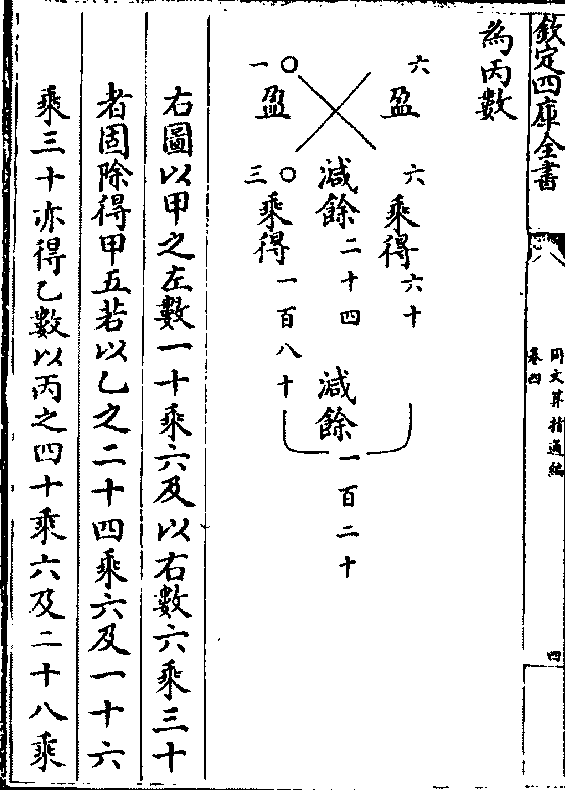 欽定四庫全書
同文算指通編
卷四
四
為丙數
六 盈 六 乘得六十
減餘二十四 減餘一百二十
一〇 盈 三〇 乘得一百八十
右圖以甲之左數一十乘六及以右數六乘三十
者固除得甲五若以乙之二十四乘六及一十六
乘三十亦得乙數以丙之四十乘六及二十八乘